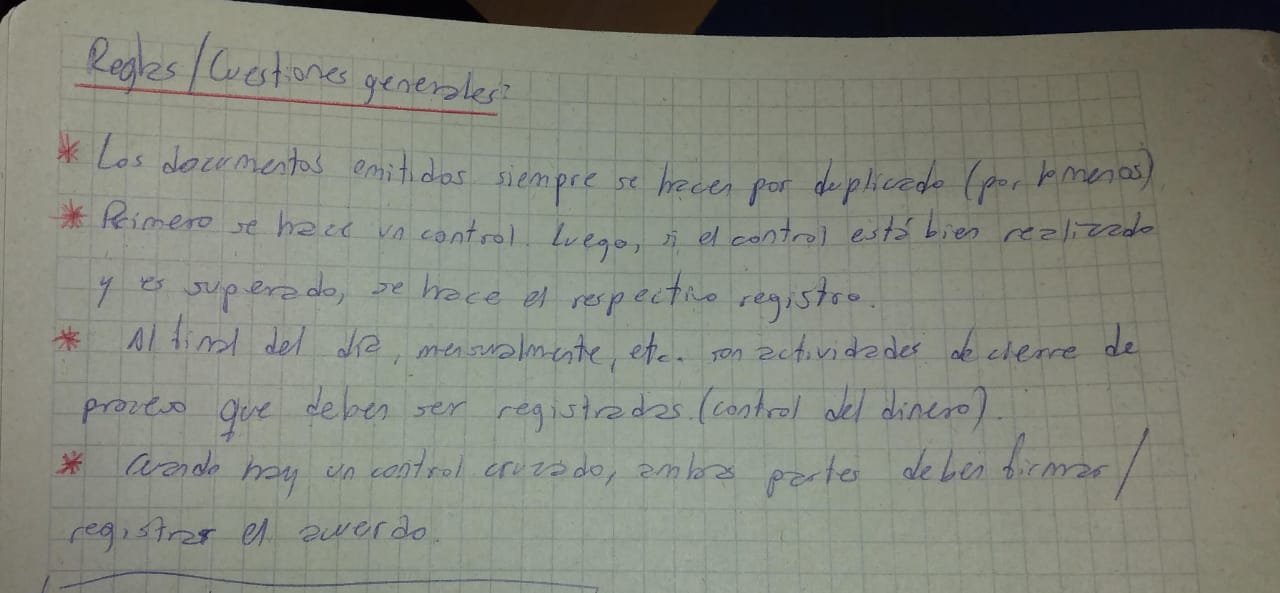 Reglas/Cuestiones generales:
* Los documentos emitidos siempre se hacen por duplicado (por lo menos)
* Primero se hace un control. Luego, si el control está bien realizado
y es superado, se hace el respectivo registro.
* Al final del día, mensualmente, etc. son actividades de cierre de
proceso que deben ser registradas (control del dinero).
* Cuando hay un control cruzado, ambas partes deben firmar/
registrar el acuerdo.